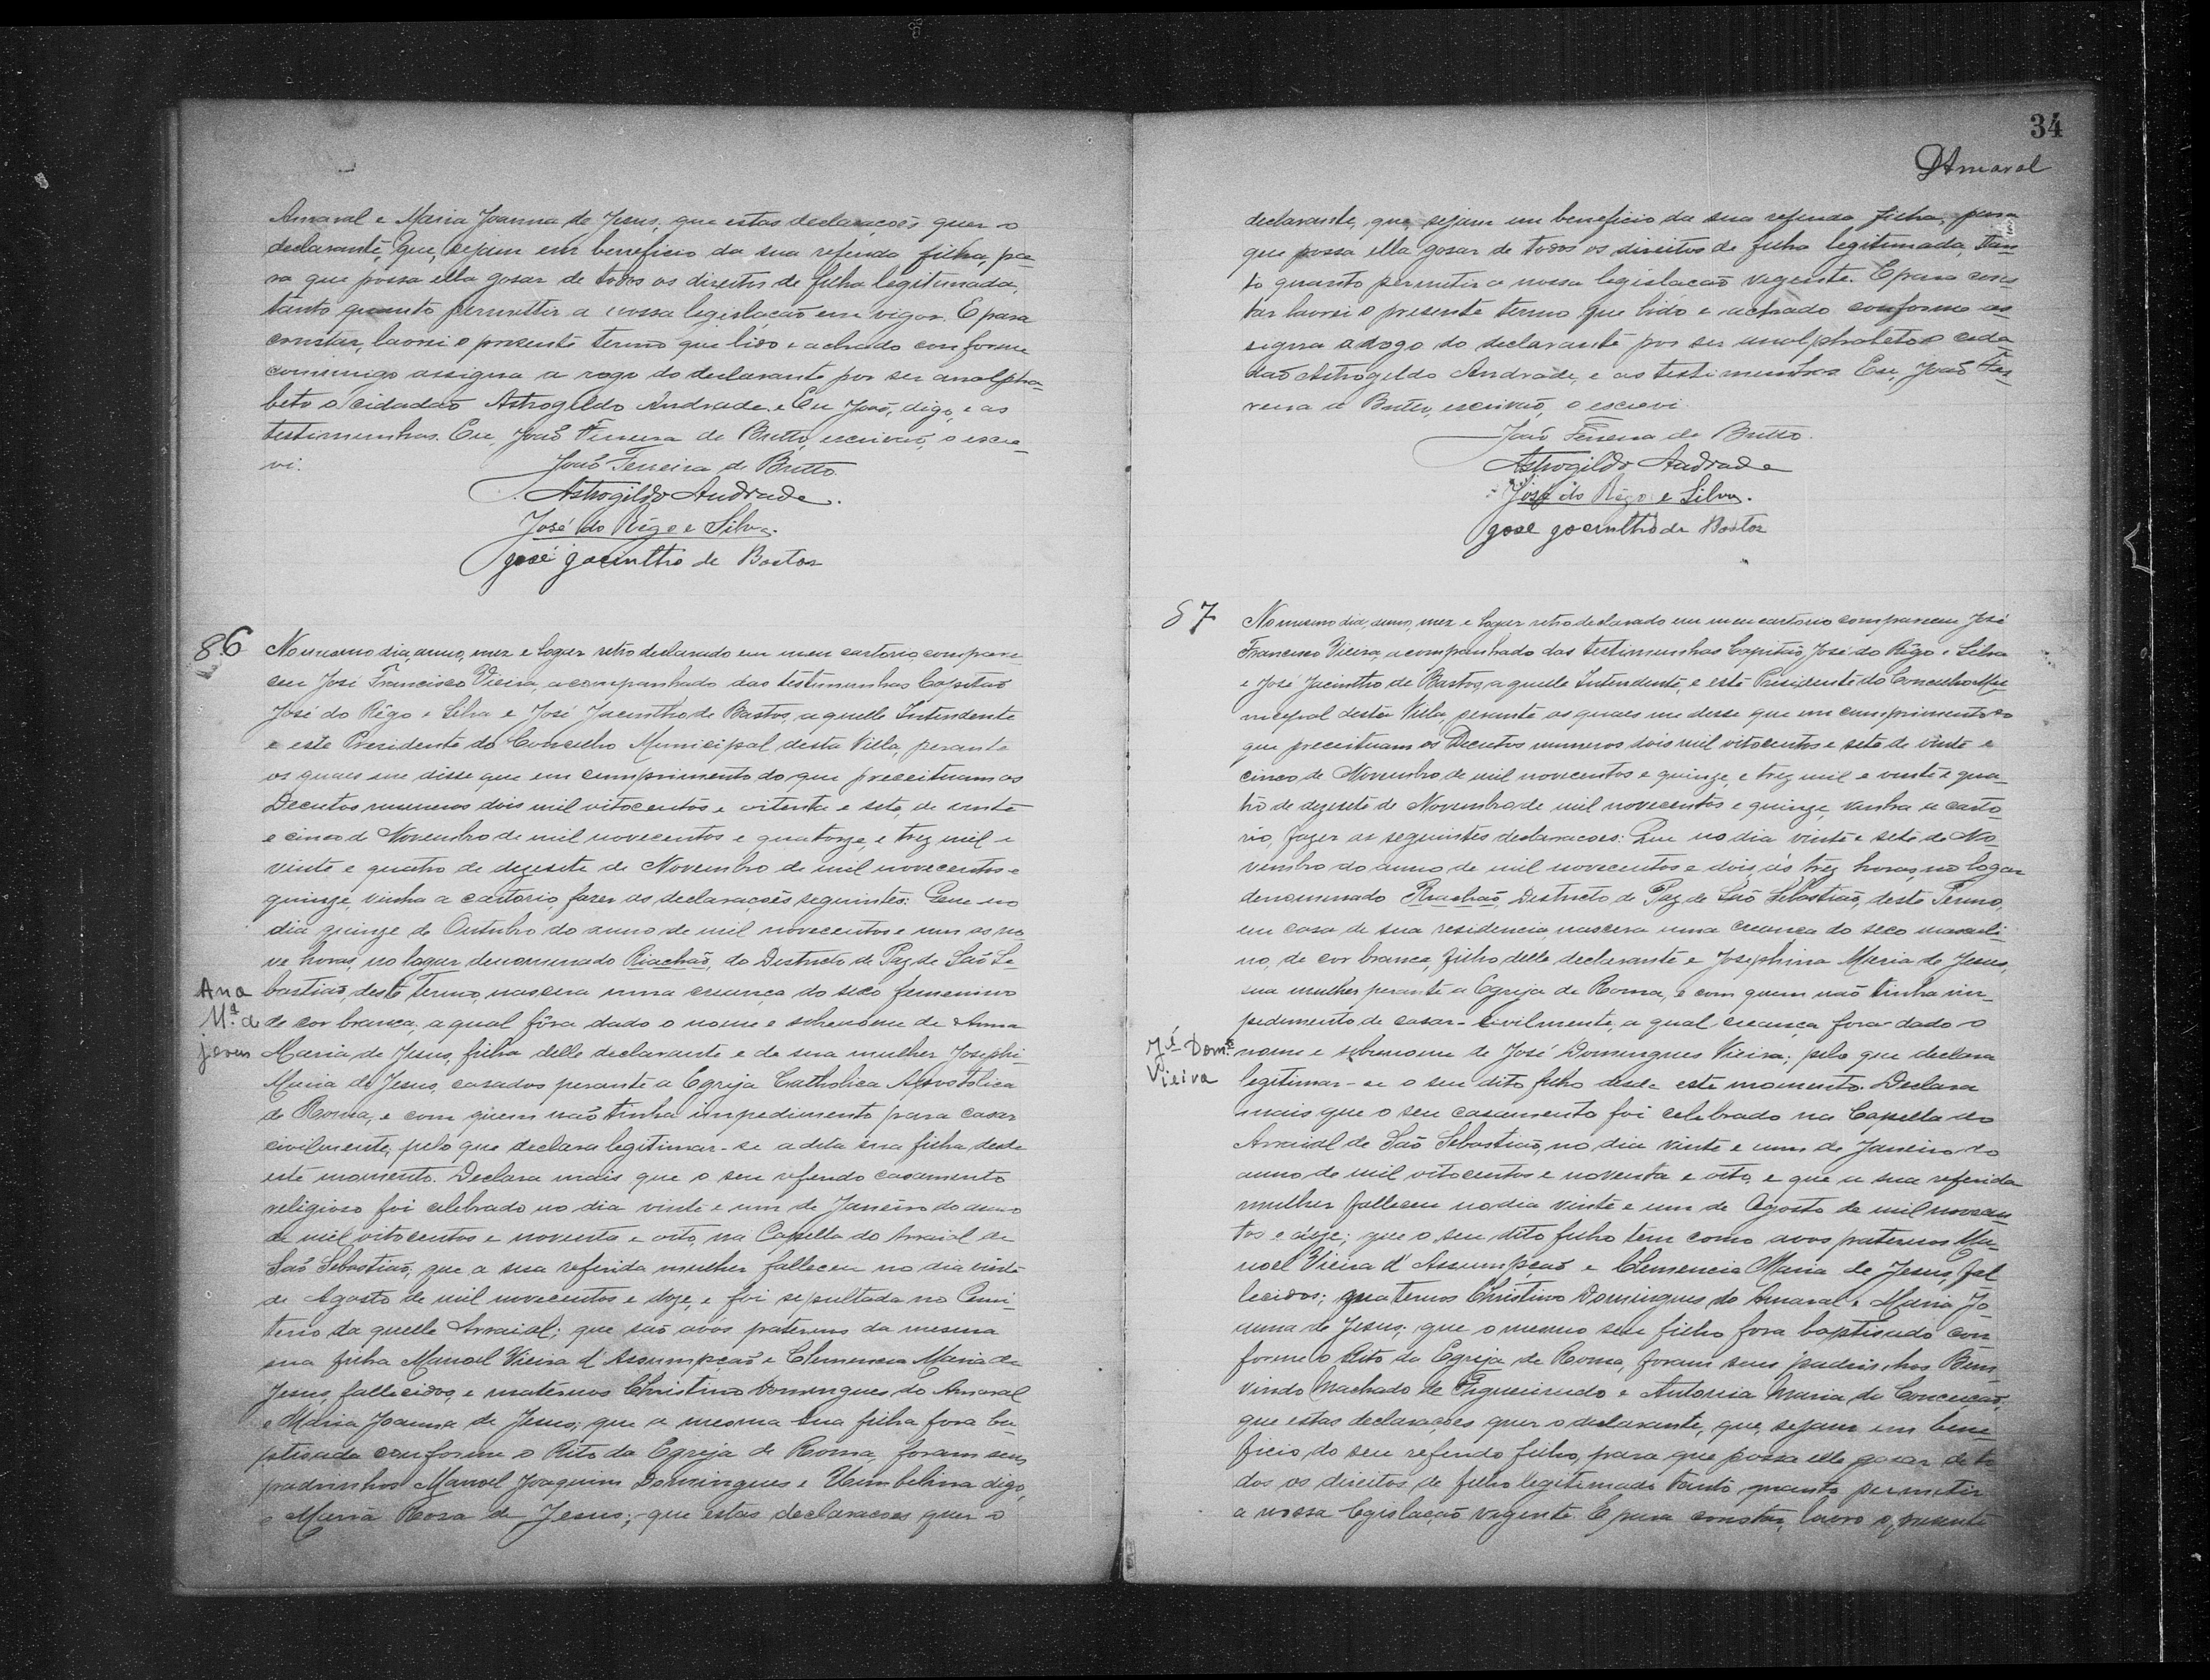 Amaral e Maria Joanna de Jesus, que estas declarações quer o
declarante, que, sejam em beneficio da sua referida filha, pa-
ra que possa ella gosar de todos os direitos de filha legitimada,
tanto quanto permittir a nossa legislação em vigor. E para
constar, lavrei o prezente termo que lido e achado conforme
commigo assigna a rogo do declarante por ser analpha-
beto o cidadão Astrogildo Andrade e Eu João, digo, e as
testimunhas. Eu, João Ferreira de Britto, escrivão, o escre-
vi.
João Ferreira de Britto.
Astrogildo Andrade.
José do Rêgo e Silva.
José Jacintho de Bastos
86
No mesmo dia, anno, mez e logar retro declarado em meu cartorio, compare-
ceu José Francisco Vieira, acompanhado das testimunhas Capitão
José do Rêgo e Silva e José Jacintho de Bastos, aquelle Intendente
e este Presidente do Conselho Municipal desta Villa, perante
os quaes me disse que em cumprimento do que preceituam os
Decretos numeros dois mil oitocentos e oitenta e sete, de vinte
e cinco de Novembro de mil novecentos e quatorze, e trez mil e
vinte e quatro de dezesete de Novembro de mil novecentos e
quinze, vinha a cartorio fazer as declarações seguintes: Que no
dia quinze de Outubro do anno de mil novecentos e um as no-
ve horas, no logar denominado Riachão, do Destricto de Paz de São Se-
bastião, deste Termo, nascera uma creança do seco femenino
Ana
Mª de
jesus
de cor branca, a qual fôra dado o nome e sobrenome de Anna
Maria de Jesus, filha delle declarante e de sua mulher Josephi-
Maria de Jesus, casados perante a Egreja Catholica Apostolica
de Roma, e com quem não tinha impedimento para casar
civilmente, pelo que declara legitimar-se a dita sua filha, desde
este momento. Declara mais, que o seu referido casamento
religioso foi celebrado no dia vinte e um de Janeiro do anno
de mil oitocentos e noventa e oito, na Capella do Arraial de
São Sebastião, que a sua referida mulher falleceu no dia vinte
de Agosto de mil novecentos e doze, e foi sepultada no Cemi-
terio daquelle Arraial; que são avós paternos da mesma
sua filha Manoel Vieira d'Assumpção e Clemencia Maria de
Jesus, fallecidos, e maternos Christino Domingues do Amaral
e Maria Joanna de Jesus; que a mesma sua filha fora ba-
ptisada conforme o Rito da Egreja de Roma, foram seus
padrinhos Manoel Joaquim Domingues e Umbelina digo,
e Maria Rosa de Jesus; que estas declaracoes quer o
34
DAmaral
declarante, que, sejam em beneficio da sua referida filha, para
que possa ella gosar de todos os direitos de filha legitimada, tan-
to quanto permetir a nossa legislacão vigente. E para cons-
tar lavrei o presente termo que lido e achado conforme as
signa a rogo do declarante por ser analphabeto o cida-
dão Astrogildo Andrade, e as testimunhas. Eu, João Fer-
reira de Britto, escrivão, o escrevi
João Ferreira de Britto.
Astrogildo Andrade
José do Rêgo e Silva.
José Jacintho de Bastos
87
No mesmo dia, anno, mez e logar retro declarado em meu cartorio compareceu José
Francisco Vieira, acompanhado das testimunhas Capitão José do Rêgo e Silva
e José Jacintho de Bastos, aquelle Intendente, e este Presidente do Conselho Mu-
nicipal desta Villa, perante os quaes me disse que em cumprimento ao
que preceituam os Decretos numeros dois mil oitocentos e sete de vinte e
cinco de Novembro de mil novecentos e quinze, e trez mil e vinte e qua-
tro de dezesete de Novembro de mil novecentos e quinze, vinha a carto-
rio, fazer as seguintes declaracoes: Que no dia vinte e sete de No-
vembro do anno de mil novecentos e dois, ás trez horas, no logar
denominado Riachão, Destricto de Paz de São Sebastião, deste Termo,
em casa de sua residencia, nascera uma creança do seco masculi-
no, de cor branca, filho delle declarante e Josephina Maria de Jesus,
sua mulher perante a Egreja de Roma, e com quem não tinha im-
pedimento de casar-civilmente, a qual creança fora dado o
Jé Domes
Vieira
nome e sobrenome de José Domingues Vieira; pelo que declara
legitimar-se o seu dito filho desde este momento. Declara
mais que o seu casamento foi celebrado na Capella do
Arraial de São Sebastião, no dia vinte e um de Janeiro do
anno de mil oitocentos e noventa e oito, e que a sua referida
mulher falleceu no dia vinte e um de Agosto de mil novecen-
tos e doze; que o seu dito filho tem como avos paternos Ma-
noel Vieira d'Assumpção e Clemencia Maria de Jesus, fal
lecidos; maternos Christino Domingues do Amaral e Maria Jo-
anna de Jesus; que o mesmo seu filho fora baptisado con-
forme o Rito da Egreja de Roma, foram seus padrinhos Bem-
vindo Machado de Figueiredo e Antonia Maria da Conceição,
que estas declarações quer o declarante, que, sejam em bene-
ficio do seu referido filho, para que possa elle gosar de to-
dos os direitos de filho legitimado tanto quanto permetir
a nossa legislação vigente. E para constar, lavro o presente